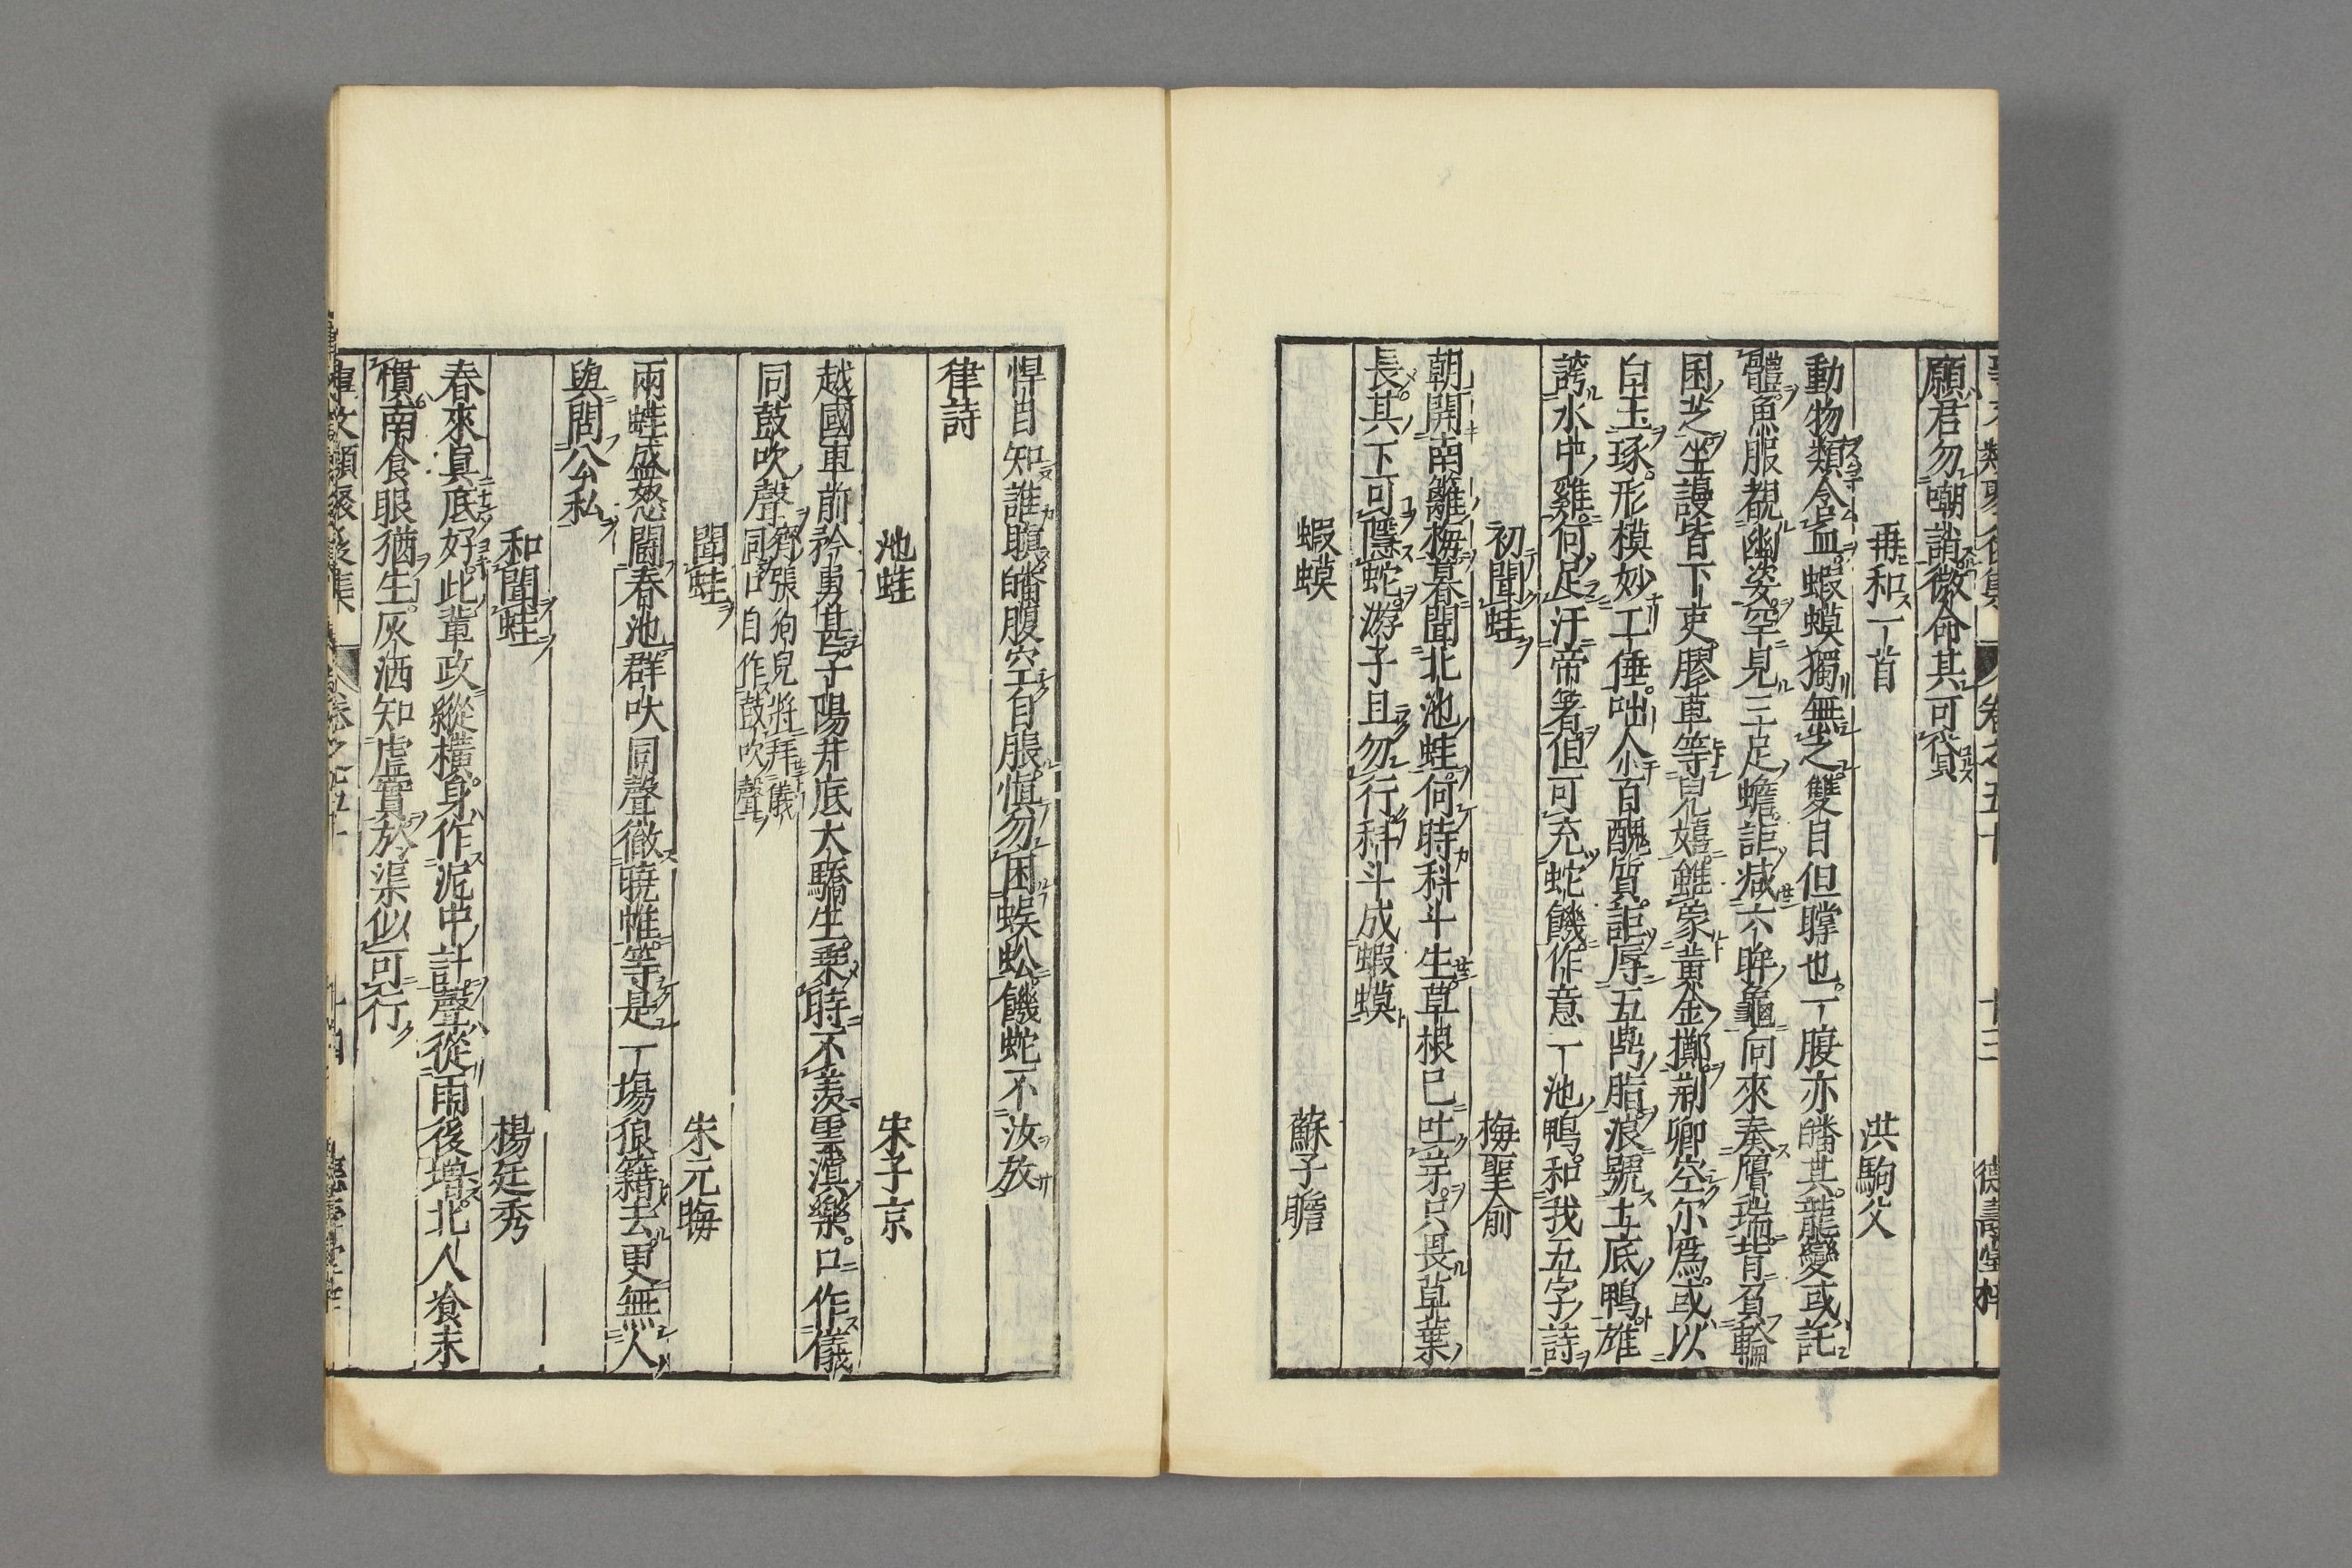 願君勿嘲誚微命其可貸
再和一首 洪駒父
動物類含血蝦蟆獨無之雙目但瞠也一腹亦皤其龍變或託
體魚服覩幽姿罕見三足蟾詎減六眸龜向來奏膺瑞背負輪
困芝坐謾皆下吏膠車等兒嬉雖蒙黃金擲荊卿空尔為或以
白玉琢形模妙工倕咄尒百醜質詎辱五鼎脂浪號土底鴨雄
誇水中雞何足汙帝箸但可充蛇饑作意一池鴨和我五字詩
初聞蛙 梅聖俞
朝開南籬梅暮聞北池蛙何時科斗生草根已吐芽只畏草葉
長其下可隱蛇游子且勿行科斗成蝦蟆
蝦蟆 蘇子瞻
睅目知誰瞋皤腹空自脹慎勿困蜈蚣饑蛇不汝放
律詩
池蛙 宋子京
越國車前矜勇甚子陽井底大驕生乘時不羨重溟樂口作儀
同鼓吹聲齊張狗兒將拜儀
同口自作鼓吹聲
聞蛙 朱元晦
兩蛙盛怒鬭春池群吠同聲徹曉帷等是一場狼籍去更無人
與問公私
和聞蛙 楊廷秀
春來真底好此輩政縱橫身作泥中計聲從雨後增北人飡未
慣南食眼猶生灰洒知虛實於渠似可行